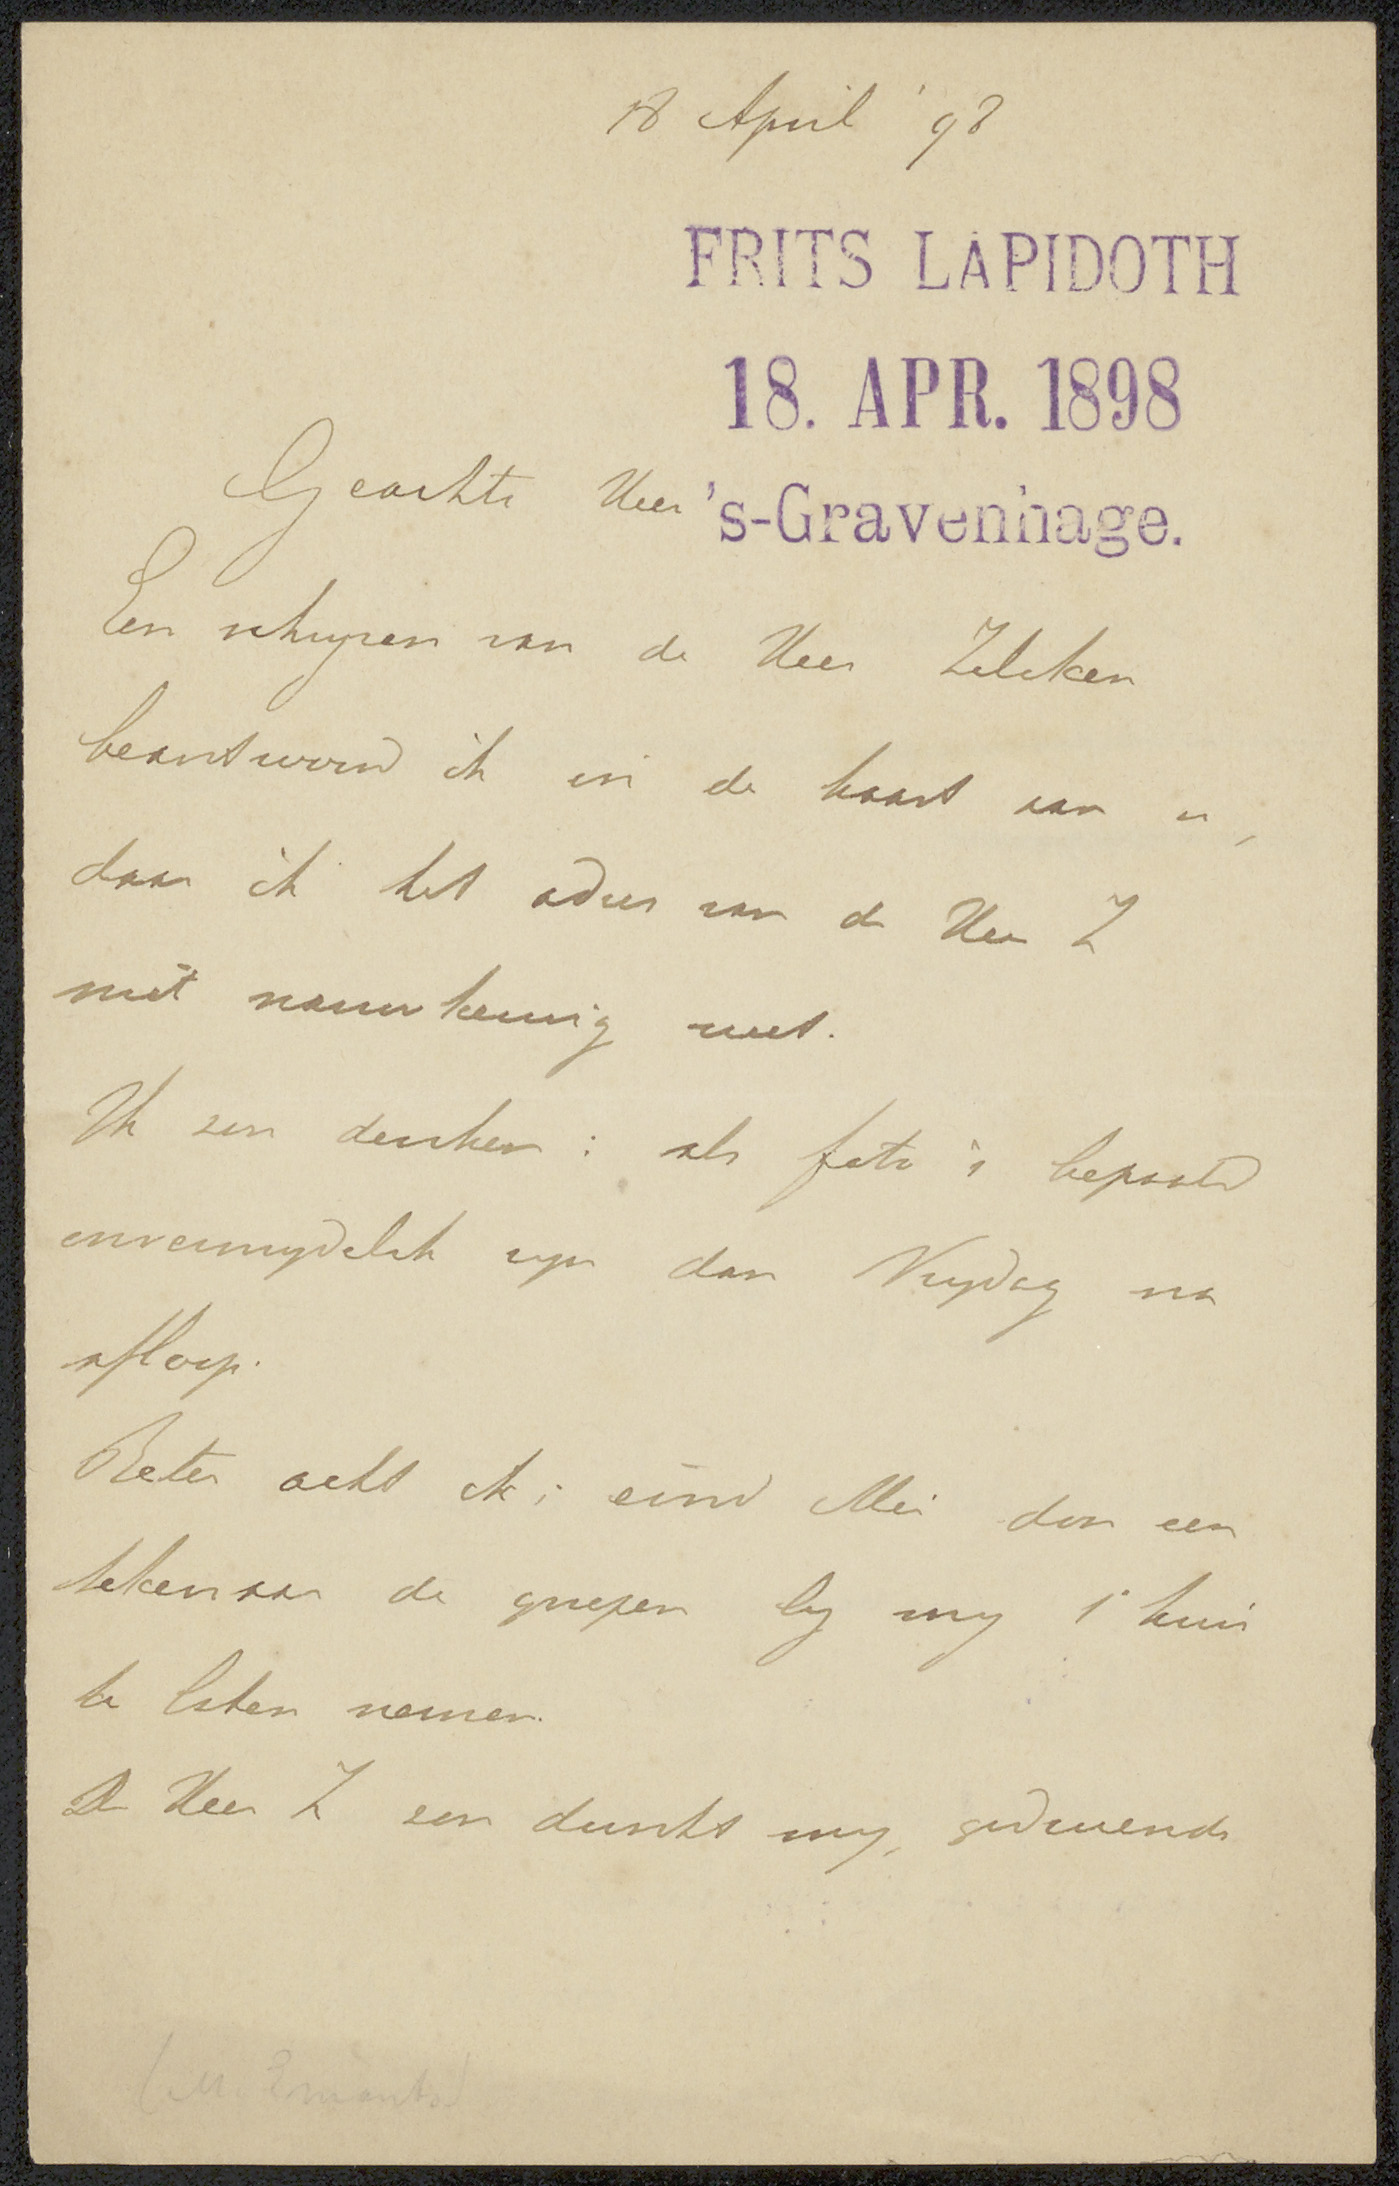 18 April '98
FRITS LAPIDOTH
18. APR. 1898
's-Gravenhage.
Geachte Heer
Een schrijven van de Heer Zilcken
beantwoord ik in de haast aan u,
daar ik het adres van de Heer Z
niet nauwkeurig weet.
Ik zou denken: als foto's bepaald
onvermijdelik zijn dan Vrijdag na
afloop.
Beter acht ik: eind Mei door een
tekenaar de groepen bij mij i huis
te laten nemen.
De Heer Z zou dunkt mij, gedurende
(M. Emants)